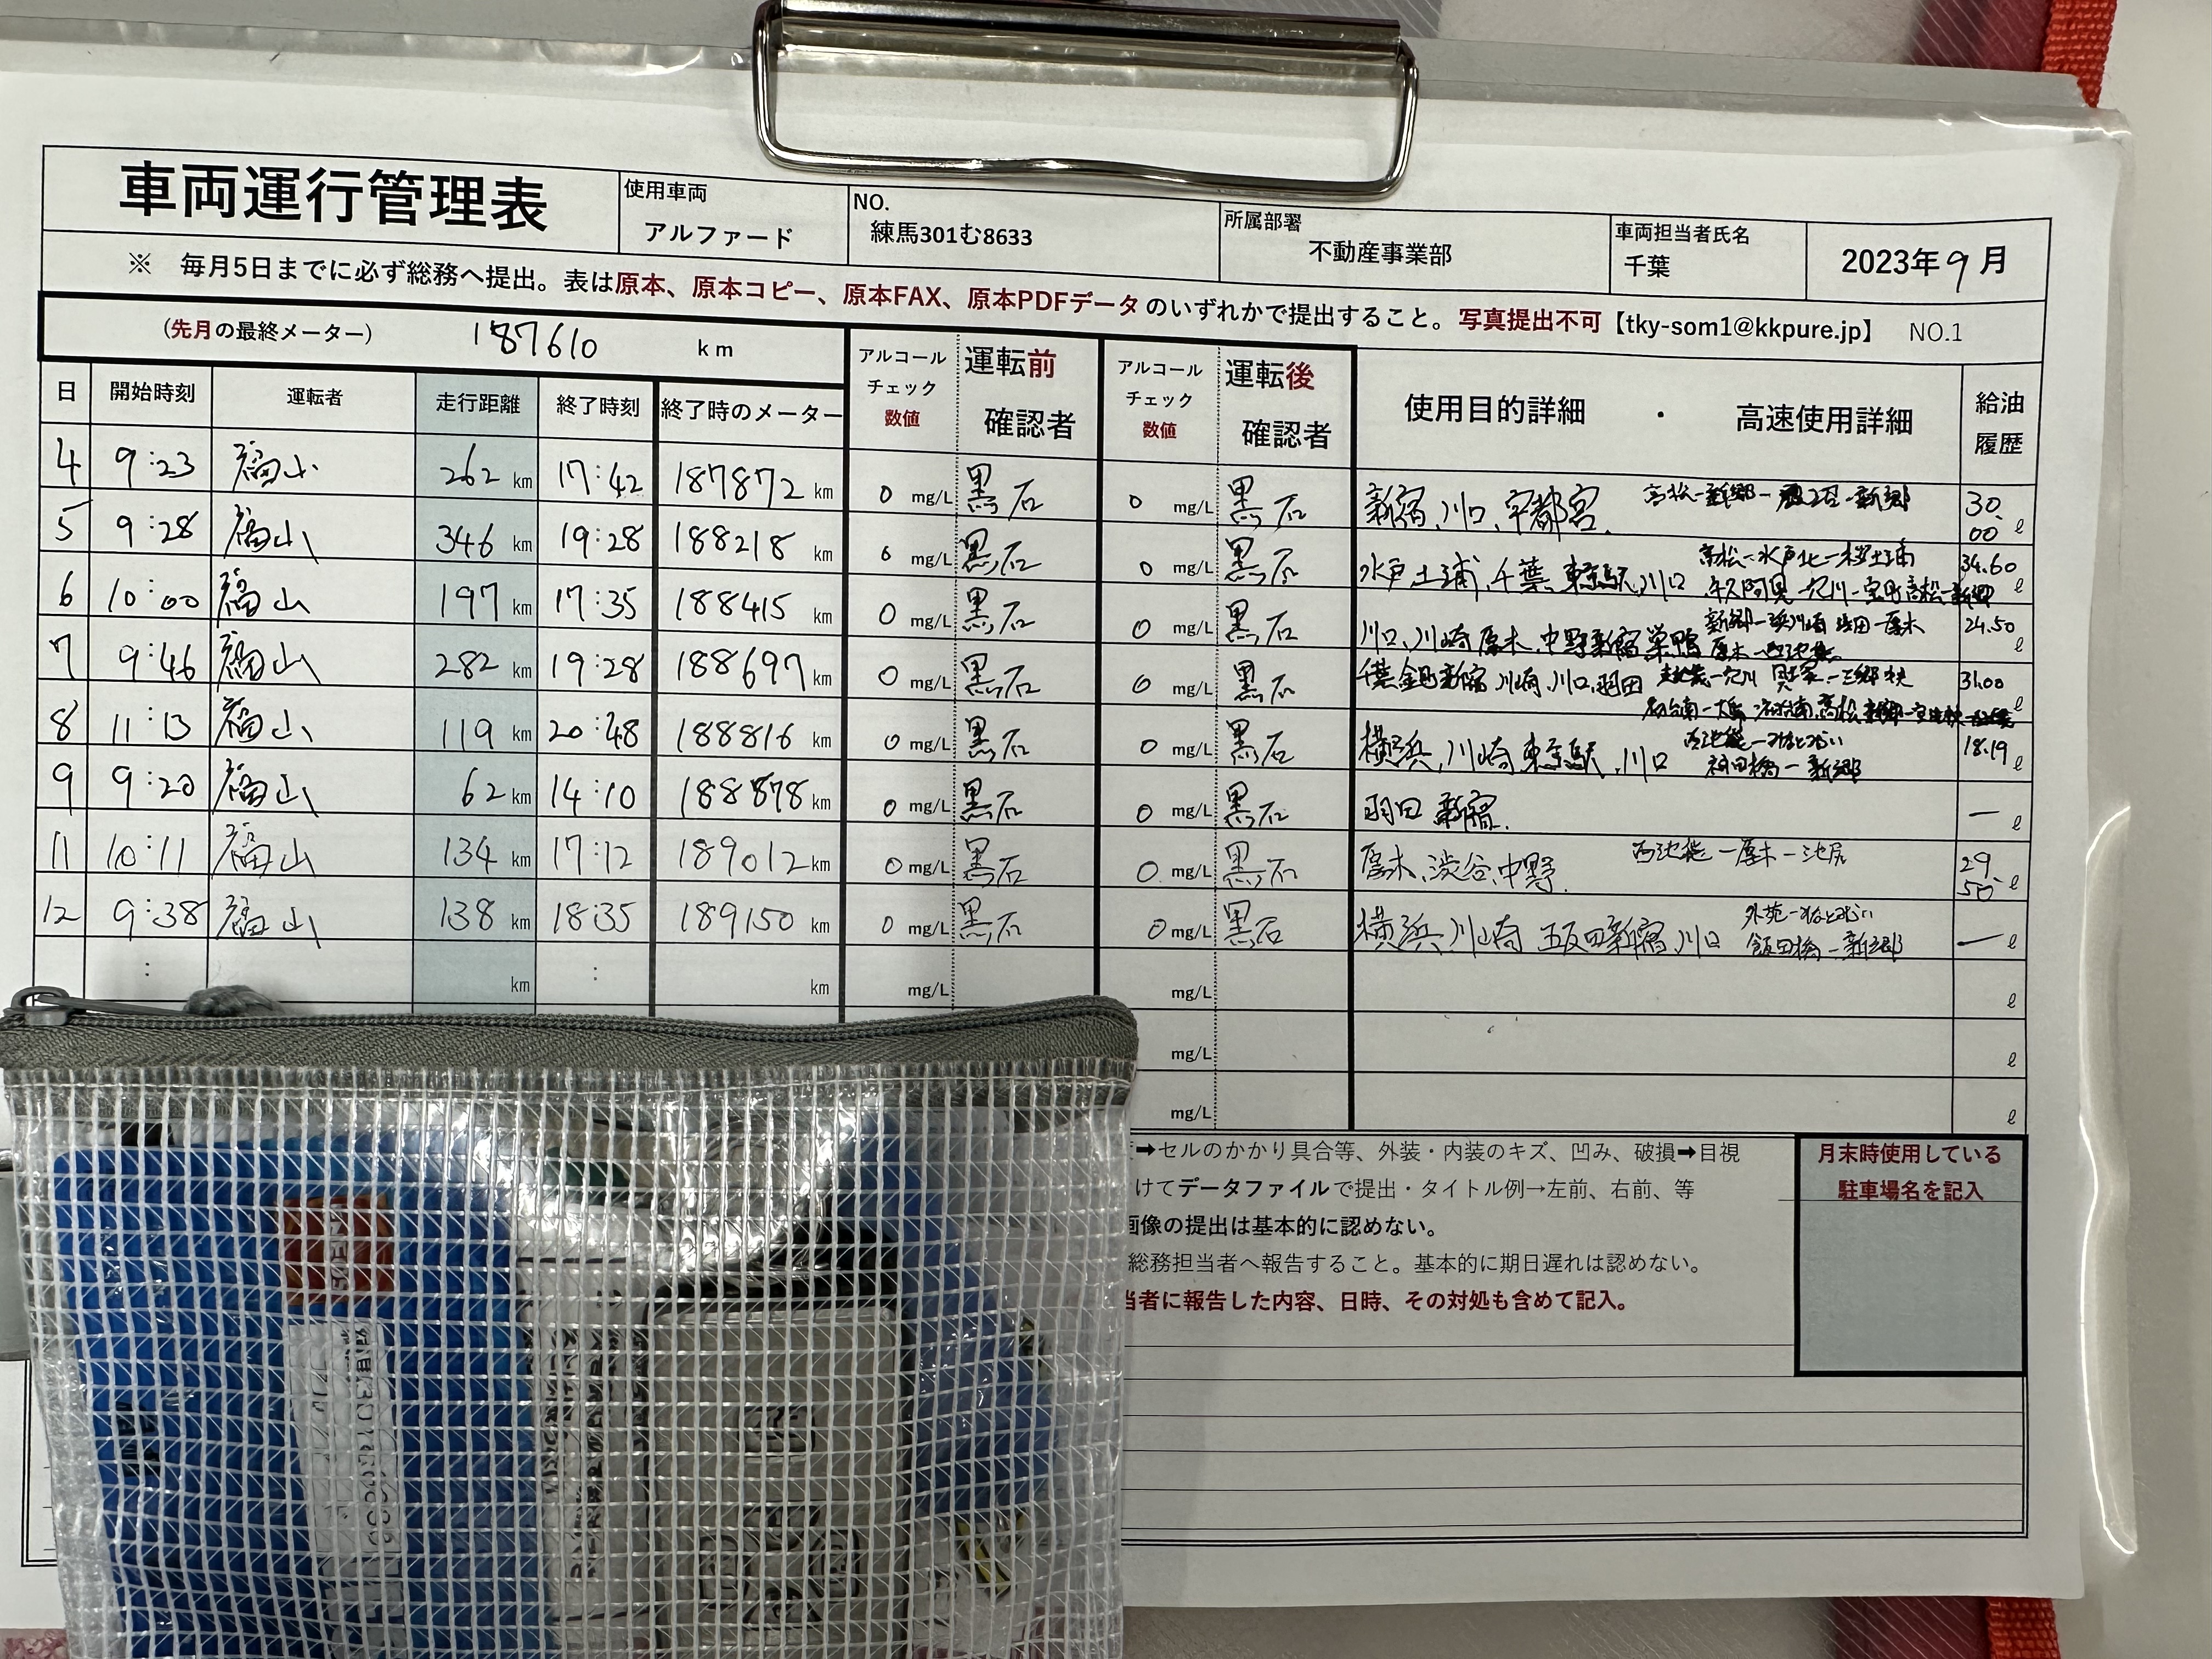 車両運行管理表
使用車両 アルファード
NO. 練馬301む8633
所属部署 不動産事業部
車両担当者氏名 千葉
2023年9月
※ 毎月5日までに必ず総務へ提出。表は原本、原本コピー、原本FAX、原本PDFデータのいずれかで提出すること。写真提出不可【tky-som1@kkpure.jp】 NO.1
(先月の最終メーター) 187610 km
日 開始時刻 運転者 走行距離 終了時刻 終了時のメーター アルコールチェック数値 運転前確認者 アルコールチェック数値 運転後確認者 使用目的詳細 ・ 高速使用詳細 給油履歴
4 9:23 福山 262 km 17:42 187872 km 0 mg/L 黒石 0 mg/L 黒石 新宿、川口、宇都宮. 高松-新郷- -新郷 30.00 ℓ
5 9:28 福山 346 km 19:28 188218 km 0 mg/L 黒石 0 mg/L 黒石 水戸土浦、千葉、東京駅、川口 高松-水戸北-桜土浦 34.60 ℓ
牛久阿見-穴川-宝町 高松-新郷
6 10:00 福山 197 km 17:35 188415 km 0 mg/L 黒石 0 mg/L 黒石 川口、川崎厚木、中野新宿巣鴨 新郷-浜川崎 -厚木 24.50 ℓ
厚木-西池袋
7 9:46 福山 282 km 19:28 188697 km 0 mg/L 黒石 0 mg/L 黒石 千葉 新宿、川崎、川口、羽田 -穴川 貝塚-三郷 31.00 ℓ
高松
8 11:13 福山 119 km 20:48 188816 km 0 mg/L 黒石 0 mg/L 黒石 横浜、川崎東京駅、川口 西池袋-みなとみらい 18.19 ℓ
神田橋-新郷
9 9:20 福山 62 km 14:10 188878 km 0 mg/L 黒石 0 mg/L 黒石 羽田 新宿. ー ℓ
11 10:11 福山 134 km 17:12 189012 km 0 mg/L 黒石 0 mg/L 黒石 厚木、渋谷、中野. 西池袋-厚木-池尻 29.50 ℓ
12 9:38 福山 138 km 18:35 189150 km 0 mg/L 黒石 0 mg/L 黒石 横浜、川崎 五反田新宿、川口 外苑-みなとみらい ー ℓ
飯田橋-新郷
: km : km mg/L mg/L ℓ
mg/L ℓ
mg/L ℓ
➡セルのかかり具合等、外装・内装のキズ、凹み、破損➡目視
けてデータファイルで提出・タイトル例→左前、右前、等
画像の提出は基本的に認めない。
総務担当者へ報告すること。基本的に期日遅れは認めない。
当者に報告した内容、日時、その対処も含めて記入。
月末時使用している
駐車場名を記入